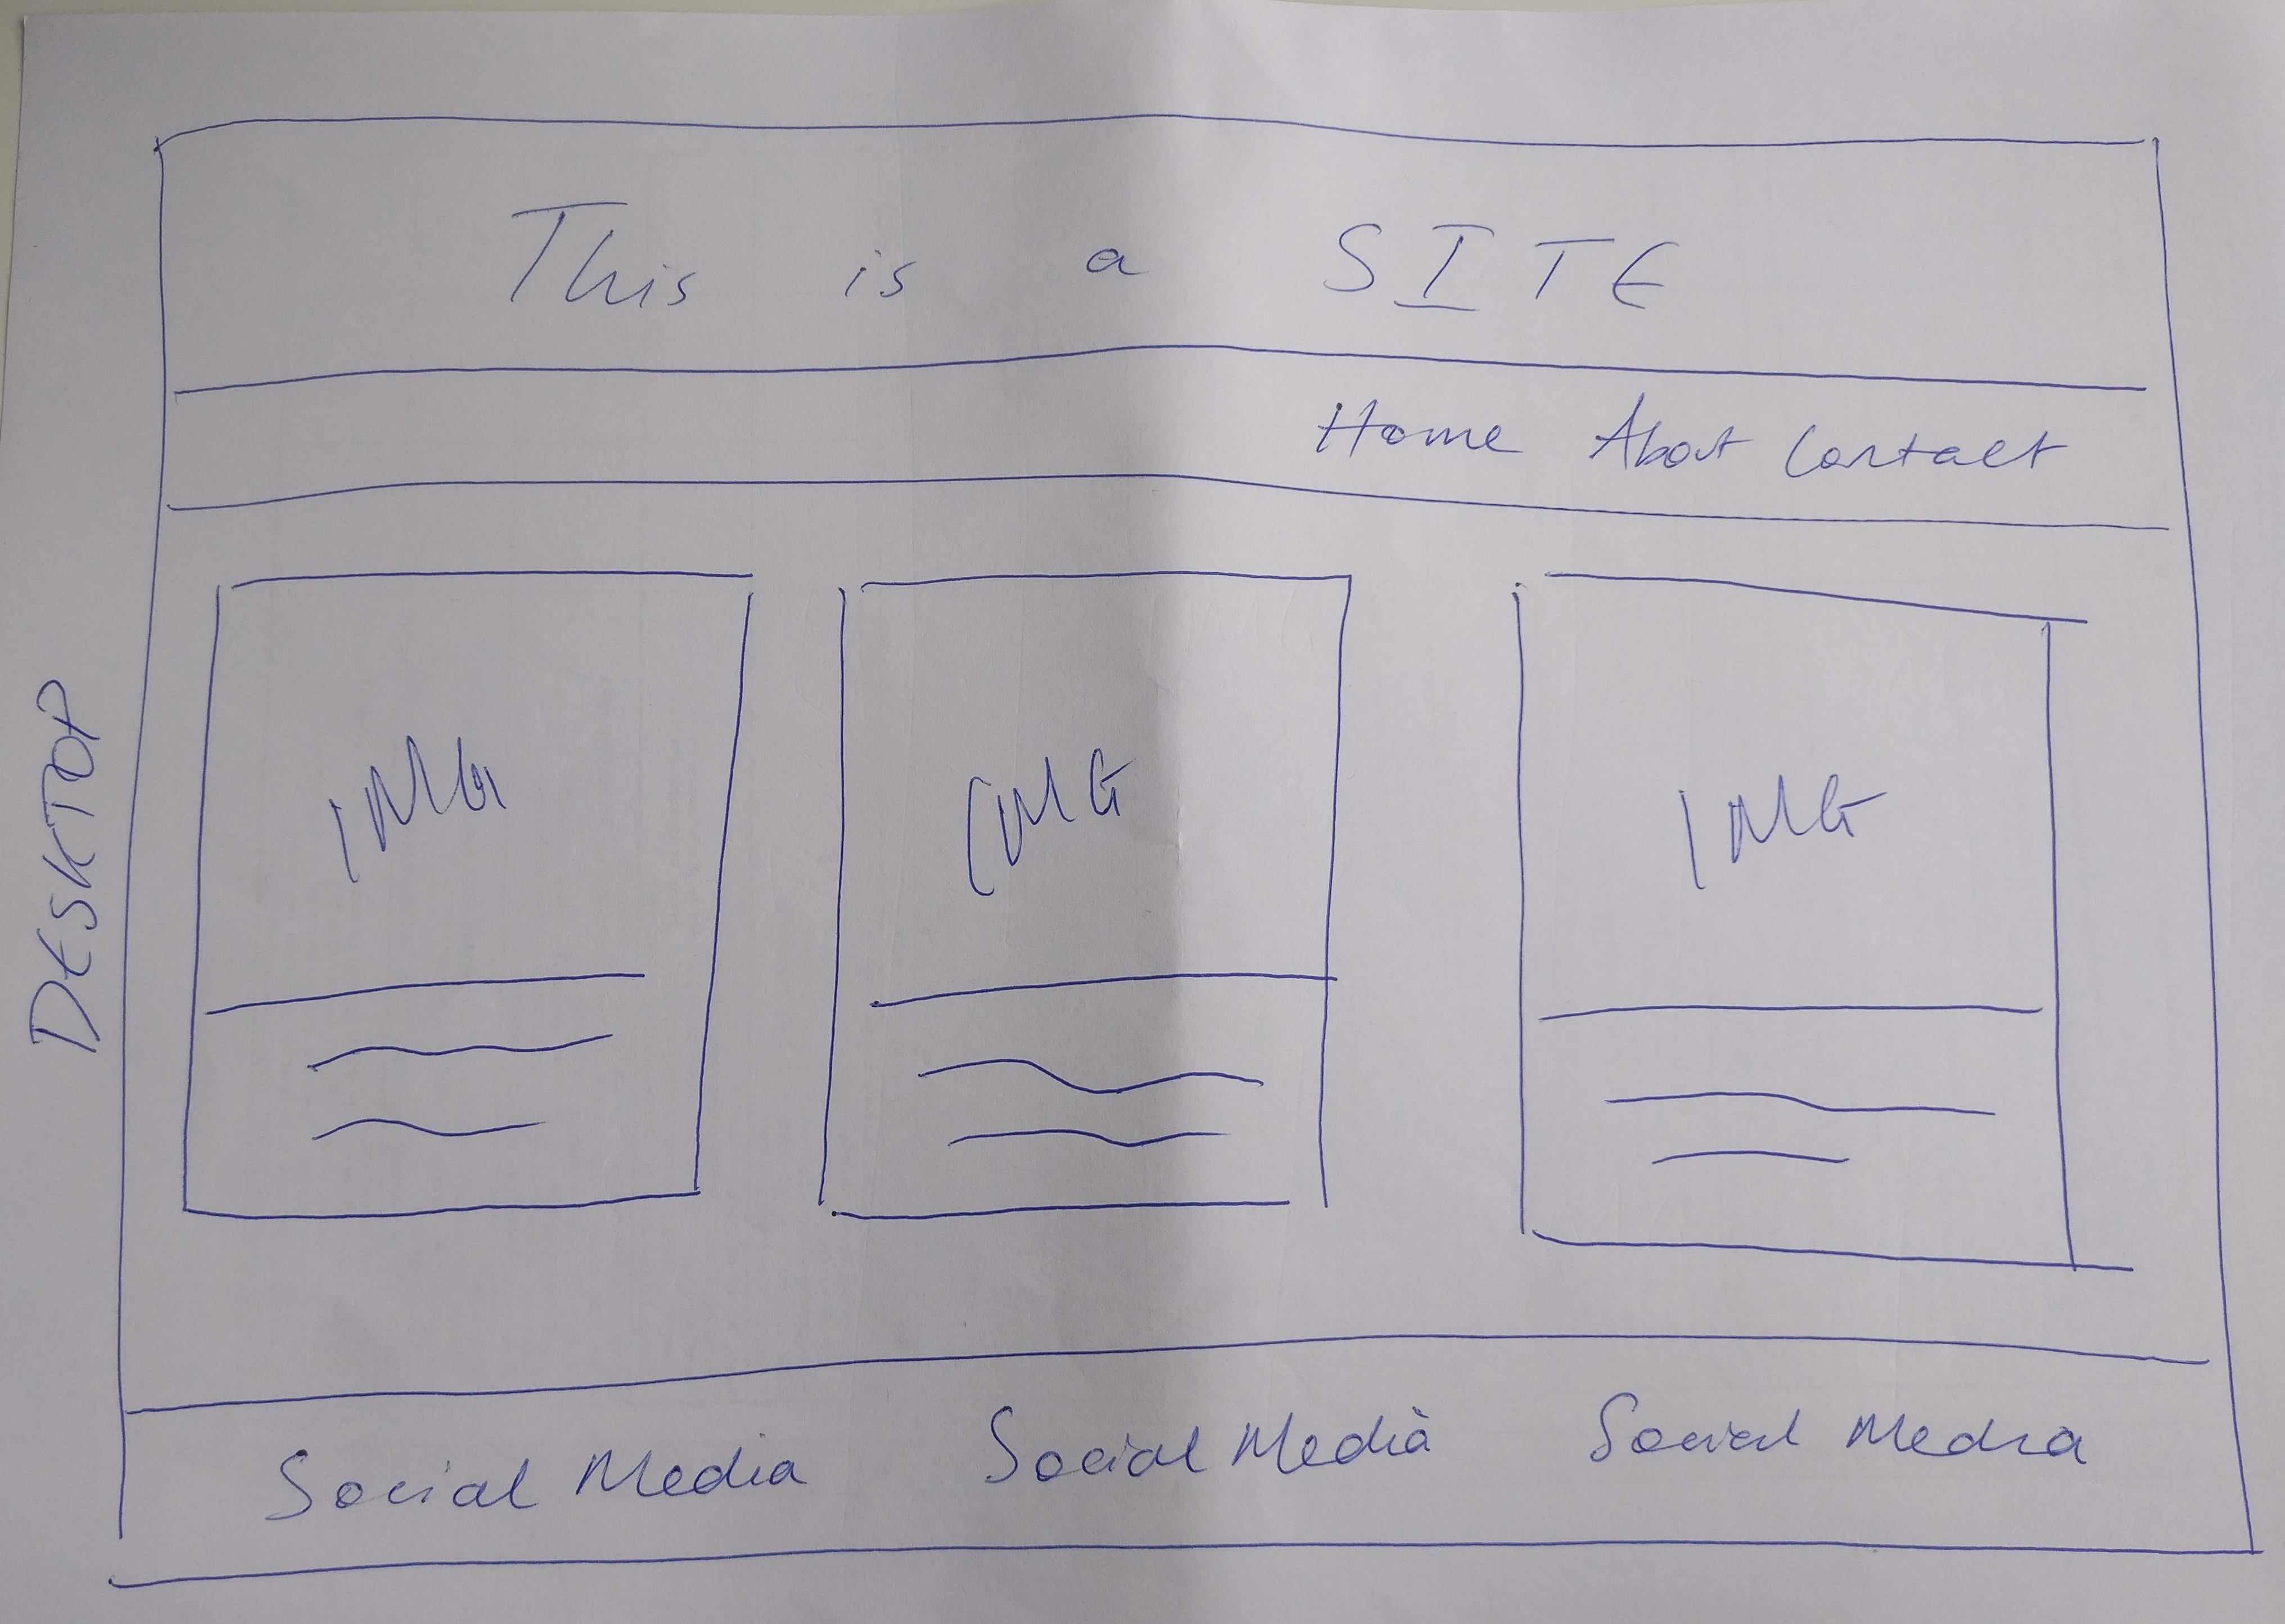 This is a SITE
Home About Contact
DESKTOP
IMG IMG IMG
Social Media Social Media Social Media